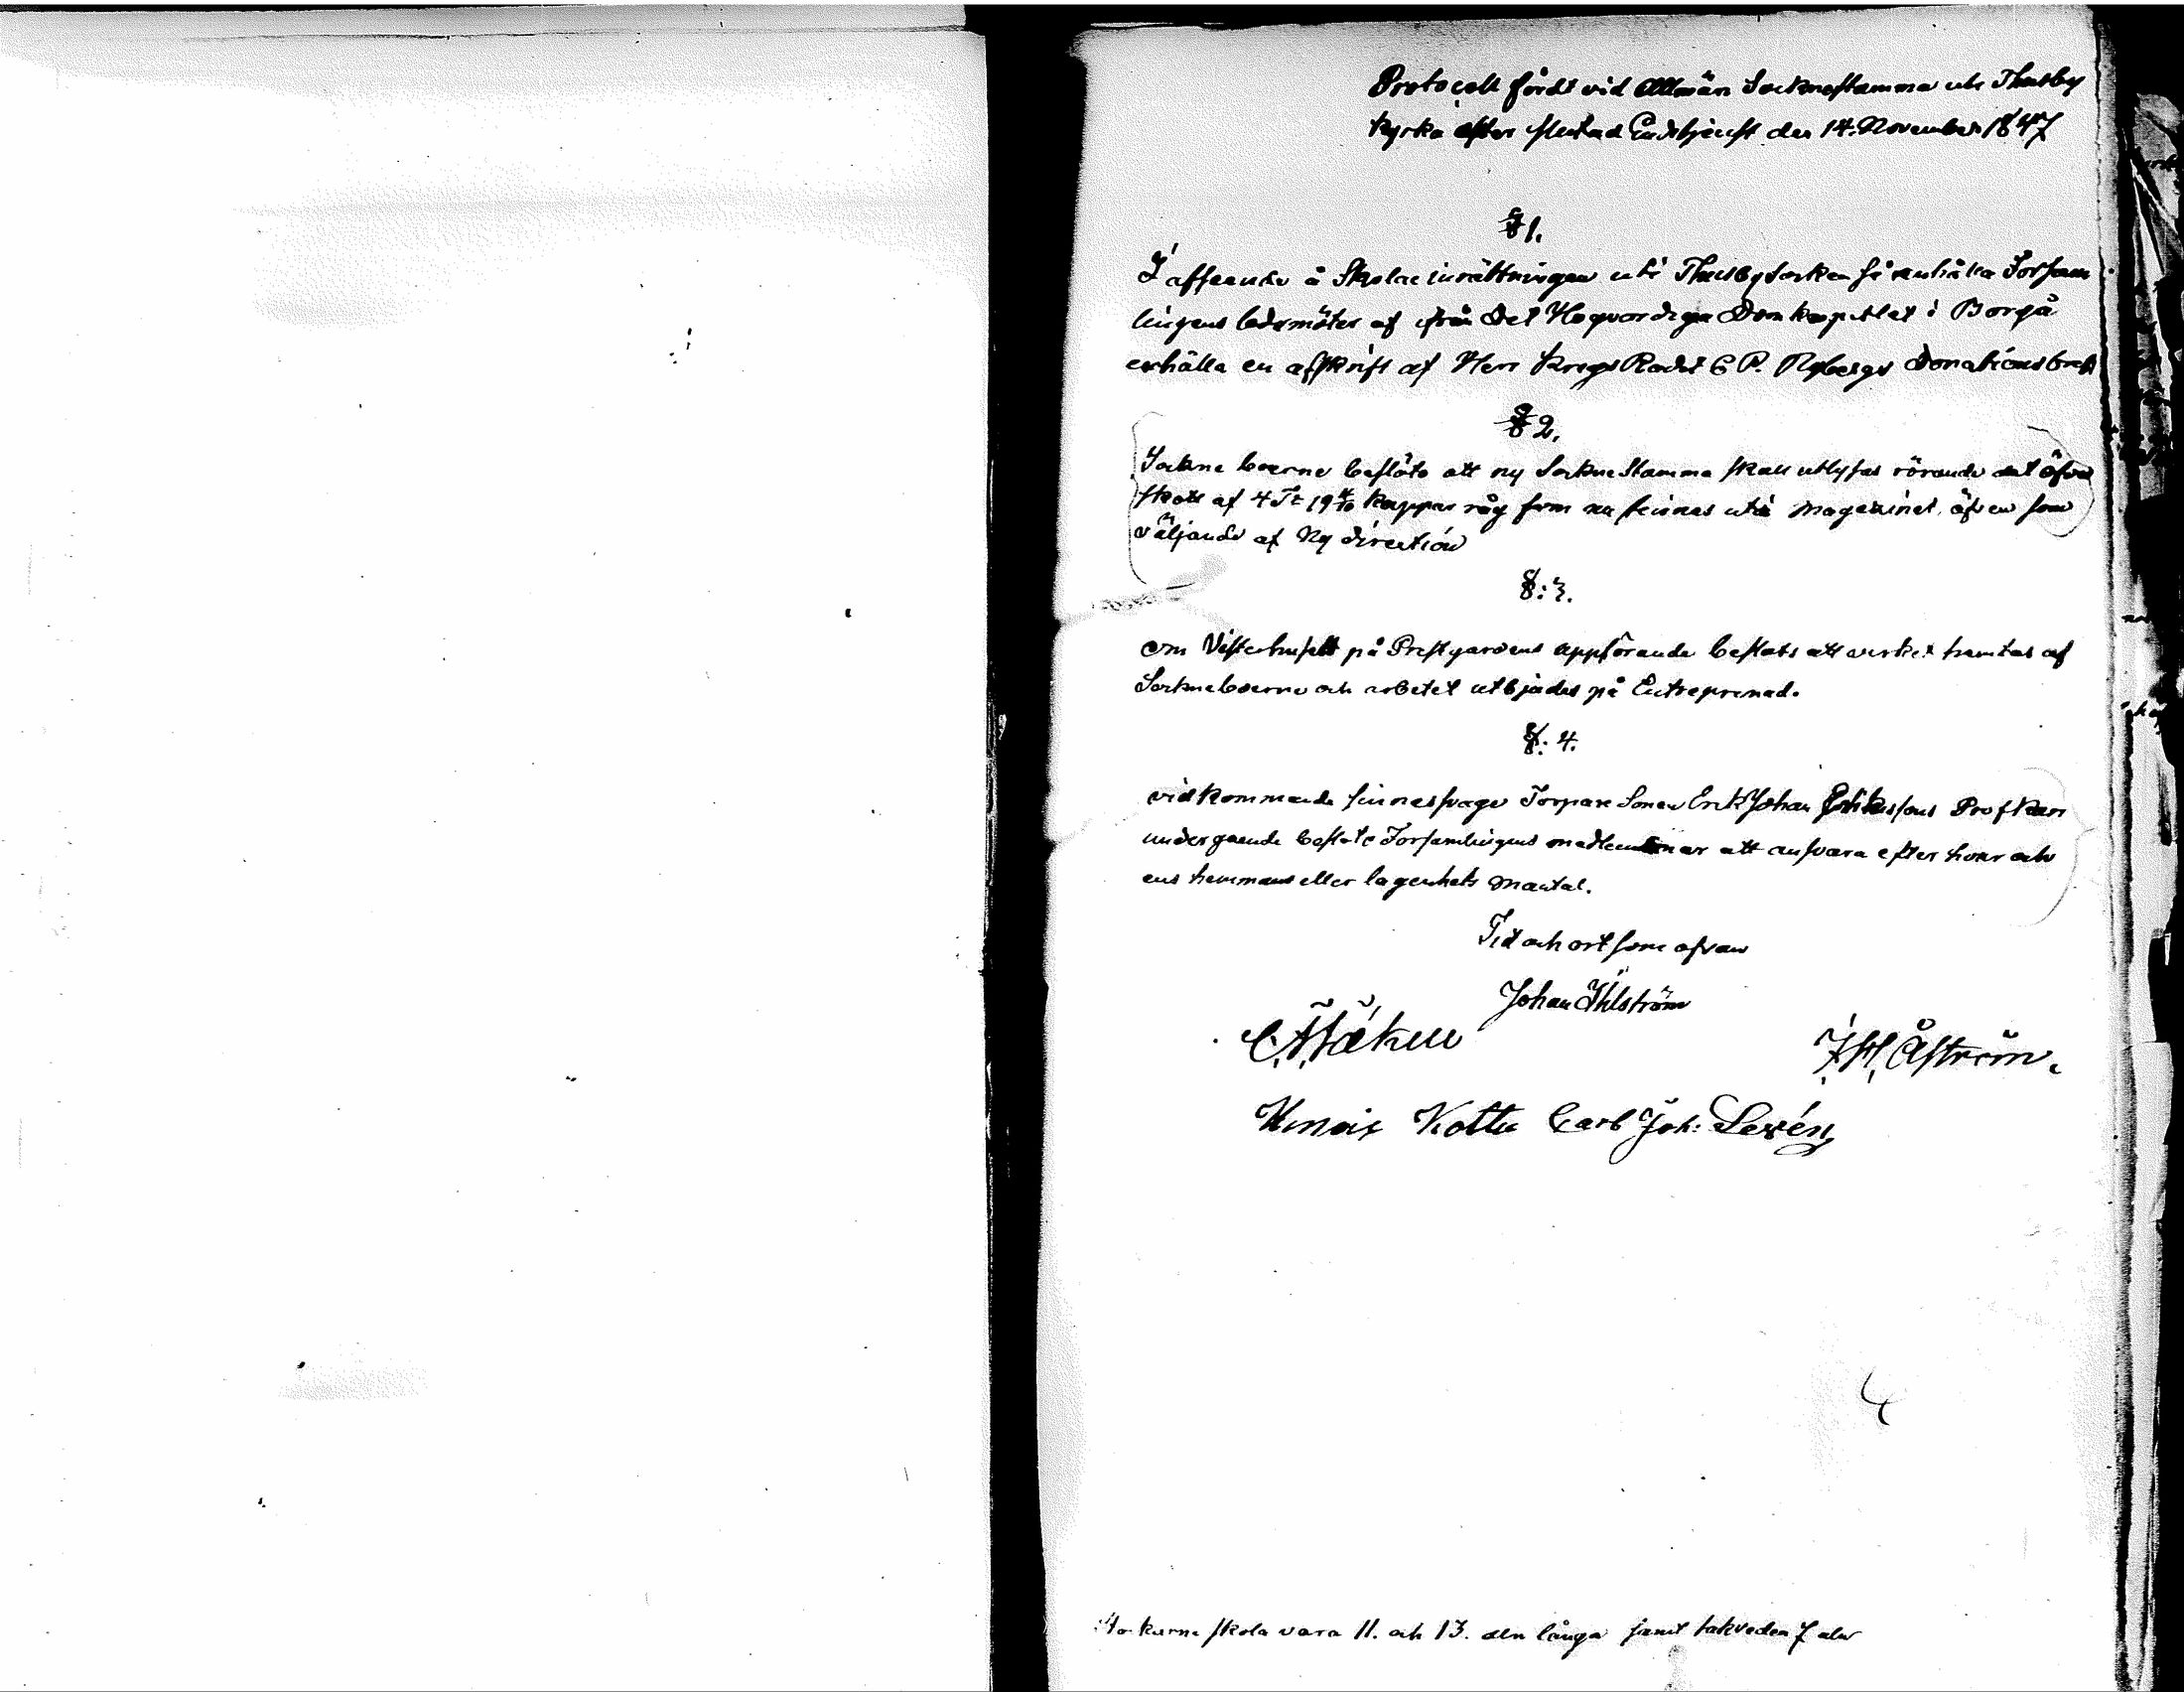 Protocoll fördt vid Allmän Sockenestamma uti Thusby
kyrka efter slutad Gudstjenst den 14. November 1847
§ 1.
I afseende å Skolae inrättningen uti Thusby socken få anhålla Forsam
lingens ledamöter af ifrån Det Högvordiga Domkapitlet i Borgå
erhålla en afskrift af Herr Krigs Rådet C P. Rybergs Donationsbref
§ 2.
Sockne boerne beslöto att ny Sockne Stamma skall utlysas rörande det öfver
skott af 4 Tr 19 4/10 kappar råg som nu finnes uti Magazinet, äfven som
väljande af Ny direction
§: 3.
om Visterhusett på Prestgardens uppförande beslats att virket hemtas af
Sockneboerne och arbetet utbjudes på Entreprenad.
§: 4.
vidkommande sinnessvage Torpare Sonen Erik Johan Erikssons
undergaende beslöts Forsamlingens medlemmar att ansvara efter hvar och
ens hemmans eller lagenhets Mantal.
Tid och ort som ofvan
Johan Ihlström
Åström.
Kotte Carl Joh: Lexén
Stockarne skola vara 11. och 13. aln långa samt takveden 7 aln